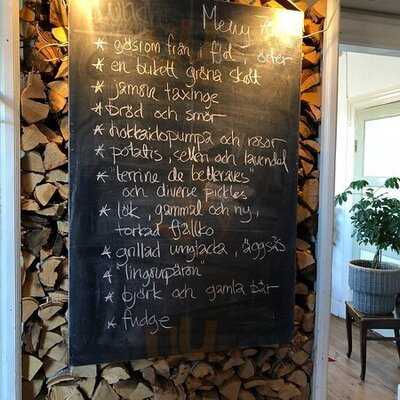 Meny
* gösrom från i fjol, örter
* en bukett gröna skott
* jämön taxinge
* bröd och smör
* hokkaidopumpa och rosor
* potatis, selleri och lavendel
* "terrine de betteraves"
och diverse pickles
* lök, gammal och ny,
torkad fjällko
* grillad ungtacka, äggsås
* "lingonpäron"
* björk och gamla bär
* fudge